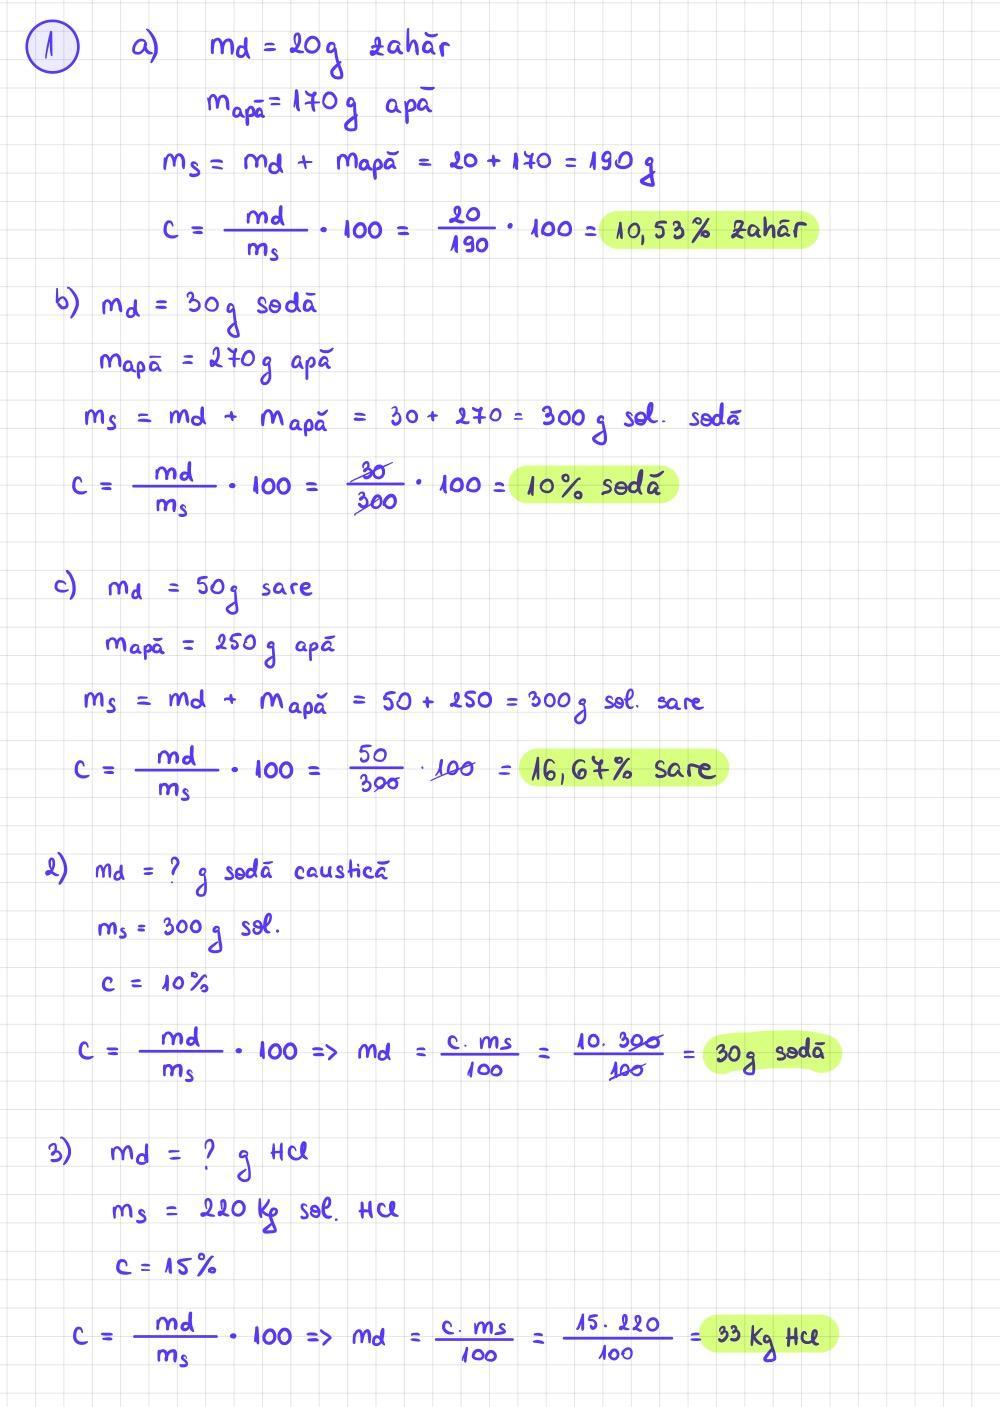 1 a) md = 20g zahăr
mapă = 170 g apă
ms = md + mapă = 20 + 170 = 190 g
C = md/ms · 100 = 20/190 · 100 = 10,53% zahăr
b) md = 30g sodă
mapă = 270g apă
ms = md + mapă = 30 + 270 = 300 g sol. sodă
C = md/ms · 100 = 30/300 · 100 = 10% sodă
c) md = 50g sare
mapă = 250 g apă
ms = md + mapă = 50 + 250 = 300g sol. sare
C = md/ms · 100 = 50/300 · 100 = 16,67% sare
2) md = ? g sodă caustică
ms = 300 g sol.
c = 10%
C = md/ms · 100 => md = c. ms/100 = 10. 300/100 = 30g sodă
3) md = ? g HCl
ms = 220 Kg sol. HCl
c = 15%
C = md/ms · 100 => md = c. ms/100 = 15. 220/100 = 33 Kg HCl